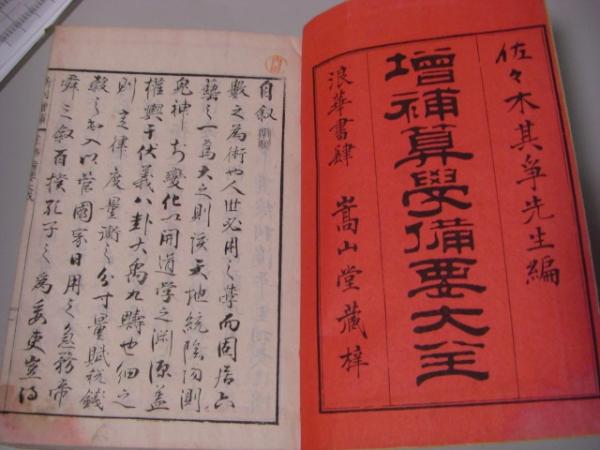 佐々木其争先生編
増補算學備要大全
浪華書肆 嵩山堂藏梓
自叙
數之為術也人世必用之學而固居六
藝之一焉大之則該天地統陰陽測
鬼神於變化以開道学之淵源蓋
權輿于伏羲八卦大禹九疇也細之
則定律度量衡之分寸量賦税錢
穀之出入以營國家日用之急務帝
舜三叙百揆孔子之為委吏豈得